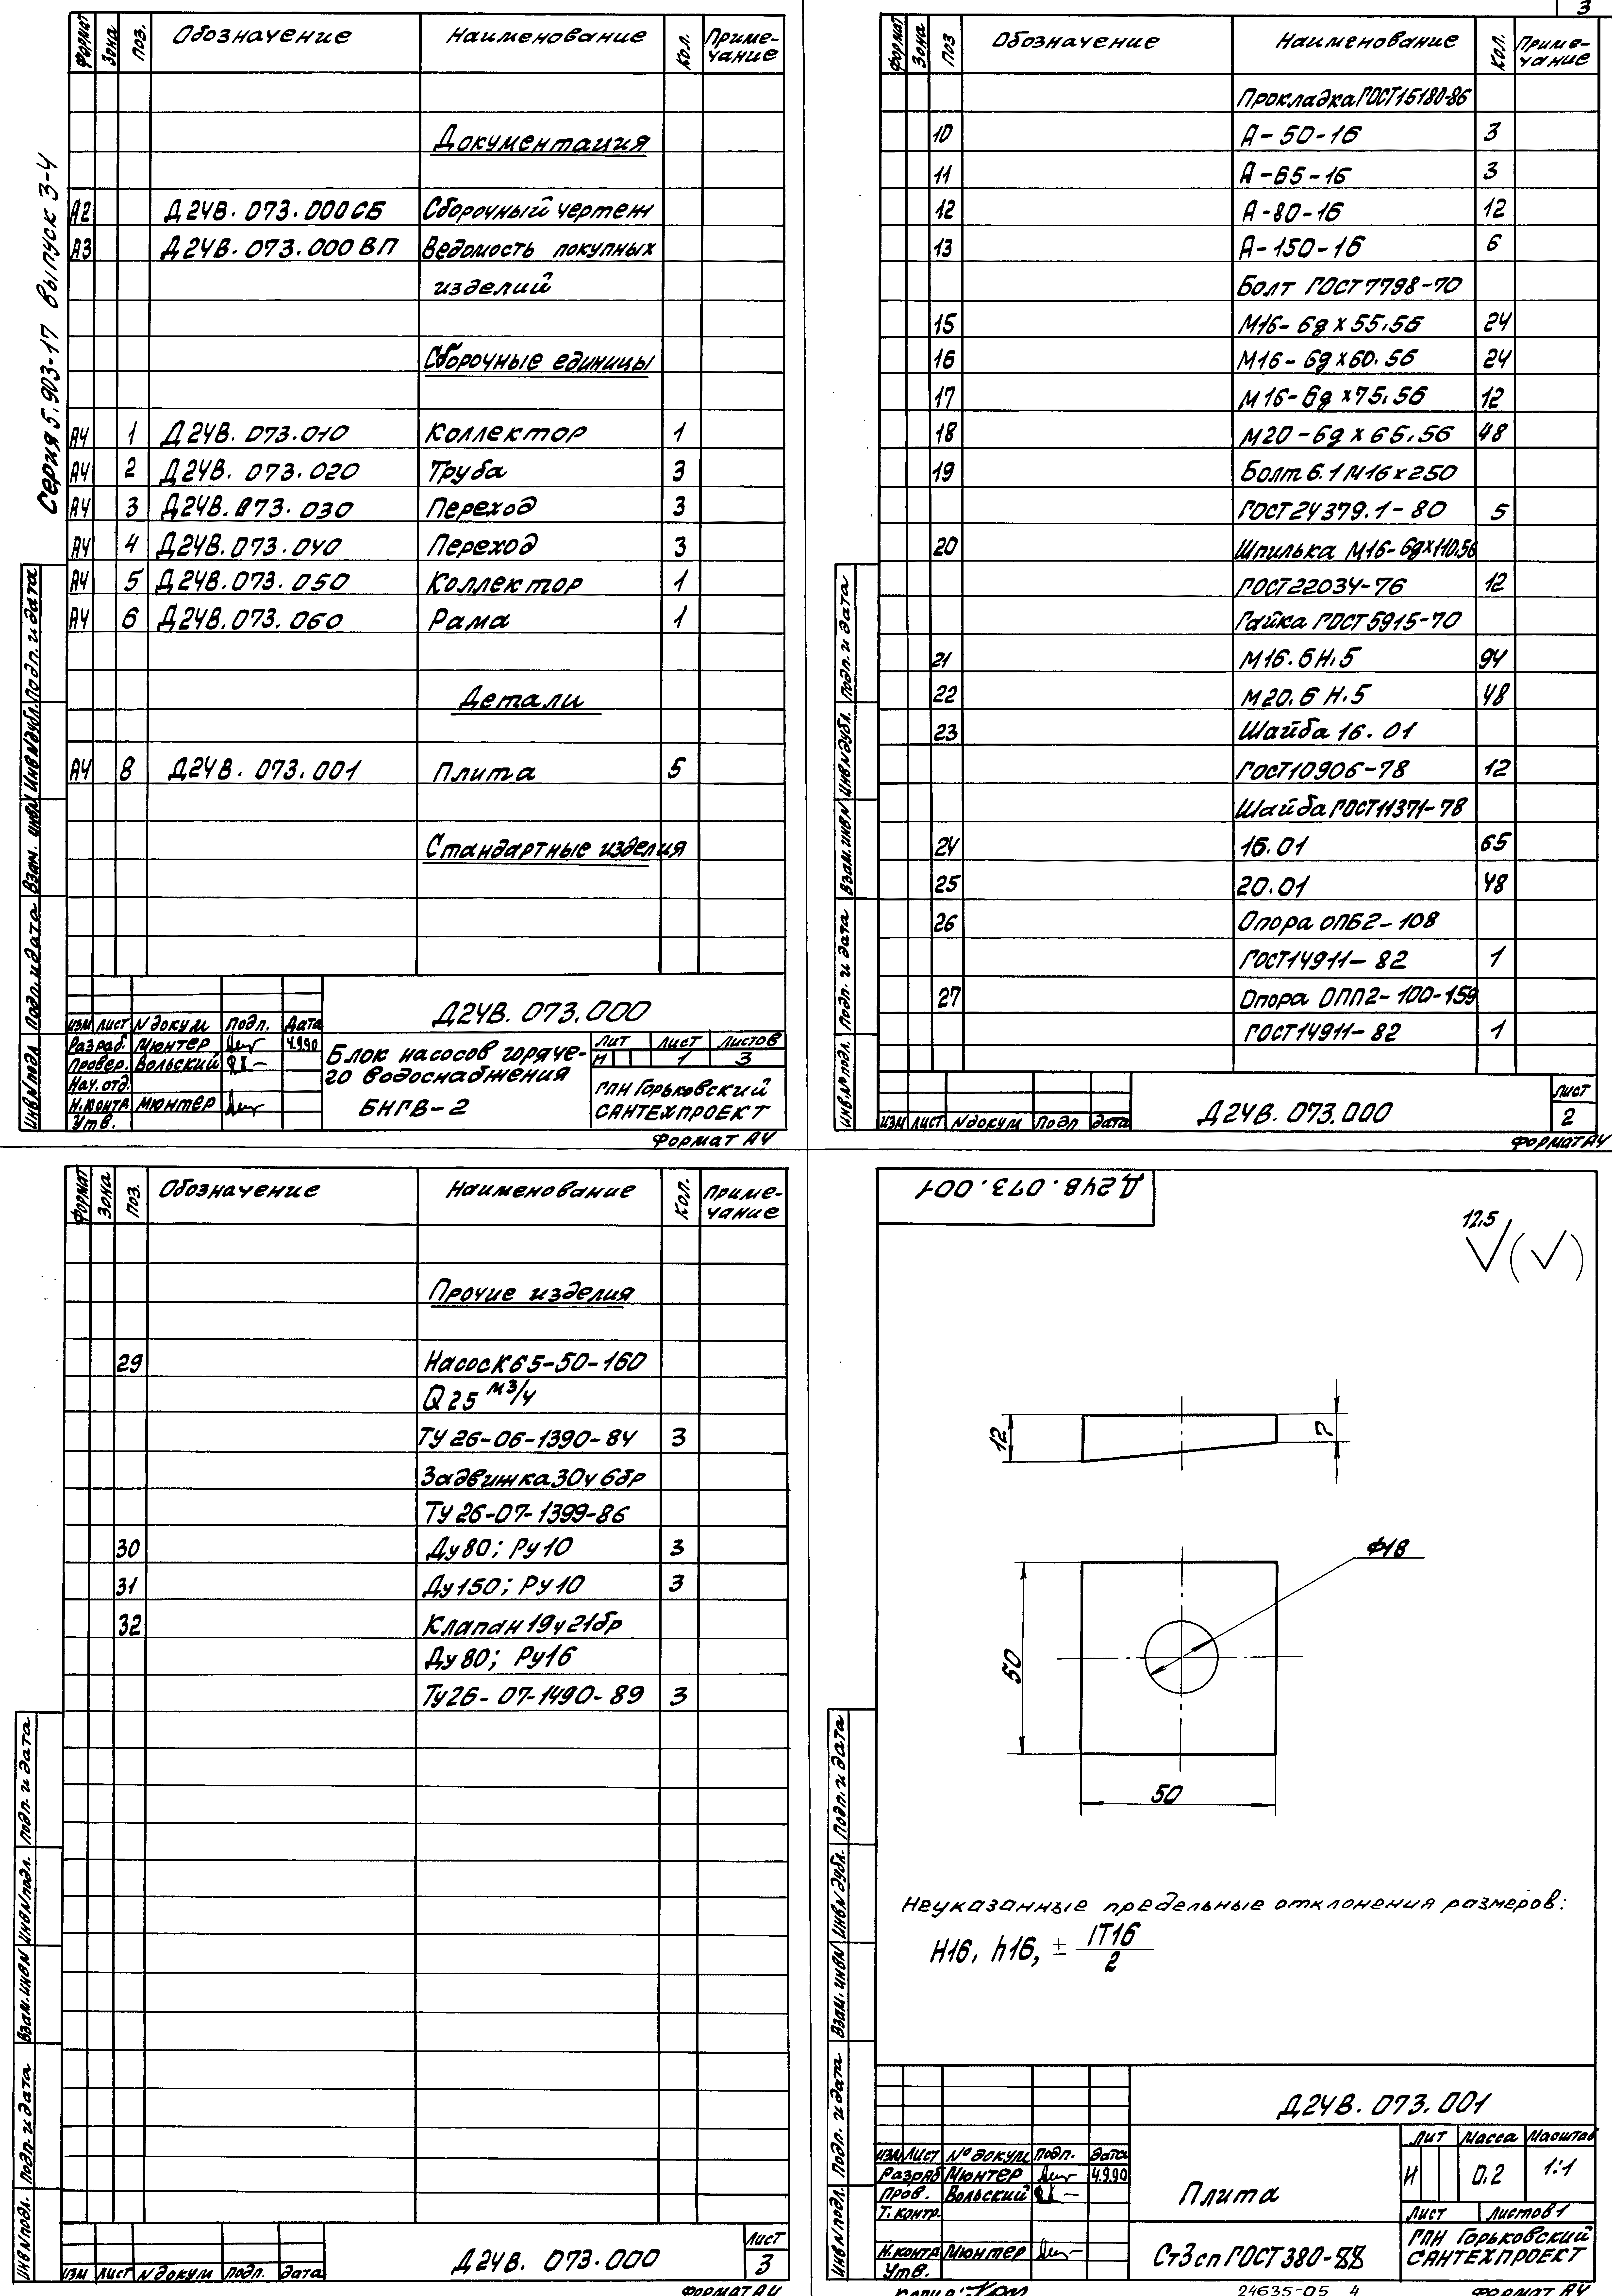 Серия 5.903-17 выпуск 3-4
Формат Зона Поз. Обозначение Наименование Кол. Приме-
чание
Документация
А2 Д24В. 073. 000СБ Сборочный чертеж
А3 Д24В. 073. 000 ВП Ведомость покупных
изделий
Сборочные единицы
А4 1 Д24В. 073.010 Коллектор 1
А4 2 Д24В. 073.020 Труба 3
А4 3 Д24В. 073. 030 Переход 3
А4 4 Д24В. 073. 040 Переход 3
А4 5 Д24В. 073. 050 Коллектор 1
А4 6 Д24В. 073. 060 Рама 1
Детали
А4 8 Д24В. 073. 001 Плита 5
Стандартные изделия
Инв N подл Подп. и дата Взам. инв N Инв N дубл. Подп. и дата
Д24В. 073.000
Изм Лист N докум Подп. Дата
Разраб. Мюнтер 4.9.90
Провер. Вольский
Нач. отд.
Н.контр Мюнтер
Утв.
Блок насосов горяче-
го водоснабжения
БНГВ-2
Лит Лист Листов
И 1 3
ГПИ Горьковский
САНТЕХПРОЕКТ
Формат А4
3
Формат Зона Поз Обозначение Наименование Кол. Приме-
чание
Прокладка ГОСТ15180-86
10 А-50-16 3
11 А-65-16 3
12 А-80-16 12
13 А-150-16 6
Болт ГОСТ 7798-70
15 М16-6g х 55.56 24
16 М16-6g х 60.56 24
17 М16-6g х 75.56 12
18 М20-6g х 65.56 48
19 Болт 6.1 М16х250
ГОСТ 24379.1-80 5
20 Шпилька М16-6gх110.56
ГОСТ22034-76 12
Гайка ГОСТ 5915-70
21 М16.6Н.5 94
22 М20.6Н.5 48
23 Шайба 16.01
ГОСТ10906-78 12
Шайба ГОСТ11371-78
24 16.01 65
25 20.01 48
26 Опора ОПБ2-108
ГОСТ14911-82 1
27 Опора ОПП2-100-159
ГОСТ14911-82 1
Инв № подл. Подп. и дата Взам. инв N Инв N дубл. Подп. и дата
Изм Лист N докум Подп Дата
Д24В. 073.000
Лист
2
Формат А4
Формат Зона Поз. Обозначение Наименование Кол. Приме-
чание
Прочие изделия
29 Насос К65-50-160
Q 25 м3/ч
ТУ 26-06-1390-84 3
Задвижка 30ч6бр
ТУ 26-07-1399-86
30 Ду 80; Ру10 3
31 Ду150; Ру10 3
32 Клапан 19ч21бр
Ду 80; Ру16
Ту26-07-1490-89 3
Инв N подл. Подп. и дата Взам. инв N Инв N подл. Подп. и дата
Изм Лист N докум Подп. Дата
Д24В. 073.000
Лист
3
Формат А4
Д24В. 073. 001
12,5
12
7
Ф18
50
50
Неуказанные предельные отклонения размеров:
Н16, h16, ± IT16
2
Инв N подл. Подп. и дата Взам. инв N Инв N дубл. Подп. и дата
Д24В. 073.001
Изм Лист № докум Подп. Дата
Разраб Мюнтер 4.9.90
Пров. Вольский
Т. контр.
Н.контр Мюнтер
Утв.
Плита
Лит Масса Масштаб
И 0.2 1:1
Лист Листов 1
Ст3сп ГОСТ 380-88
ГПИ Горьковский
САНТЕХПРОЕКТ
24635-05 4
Формат А4